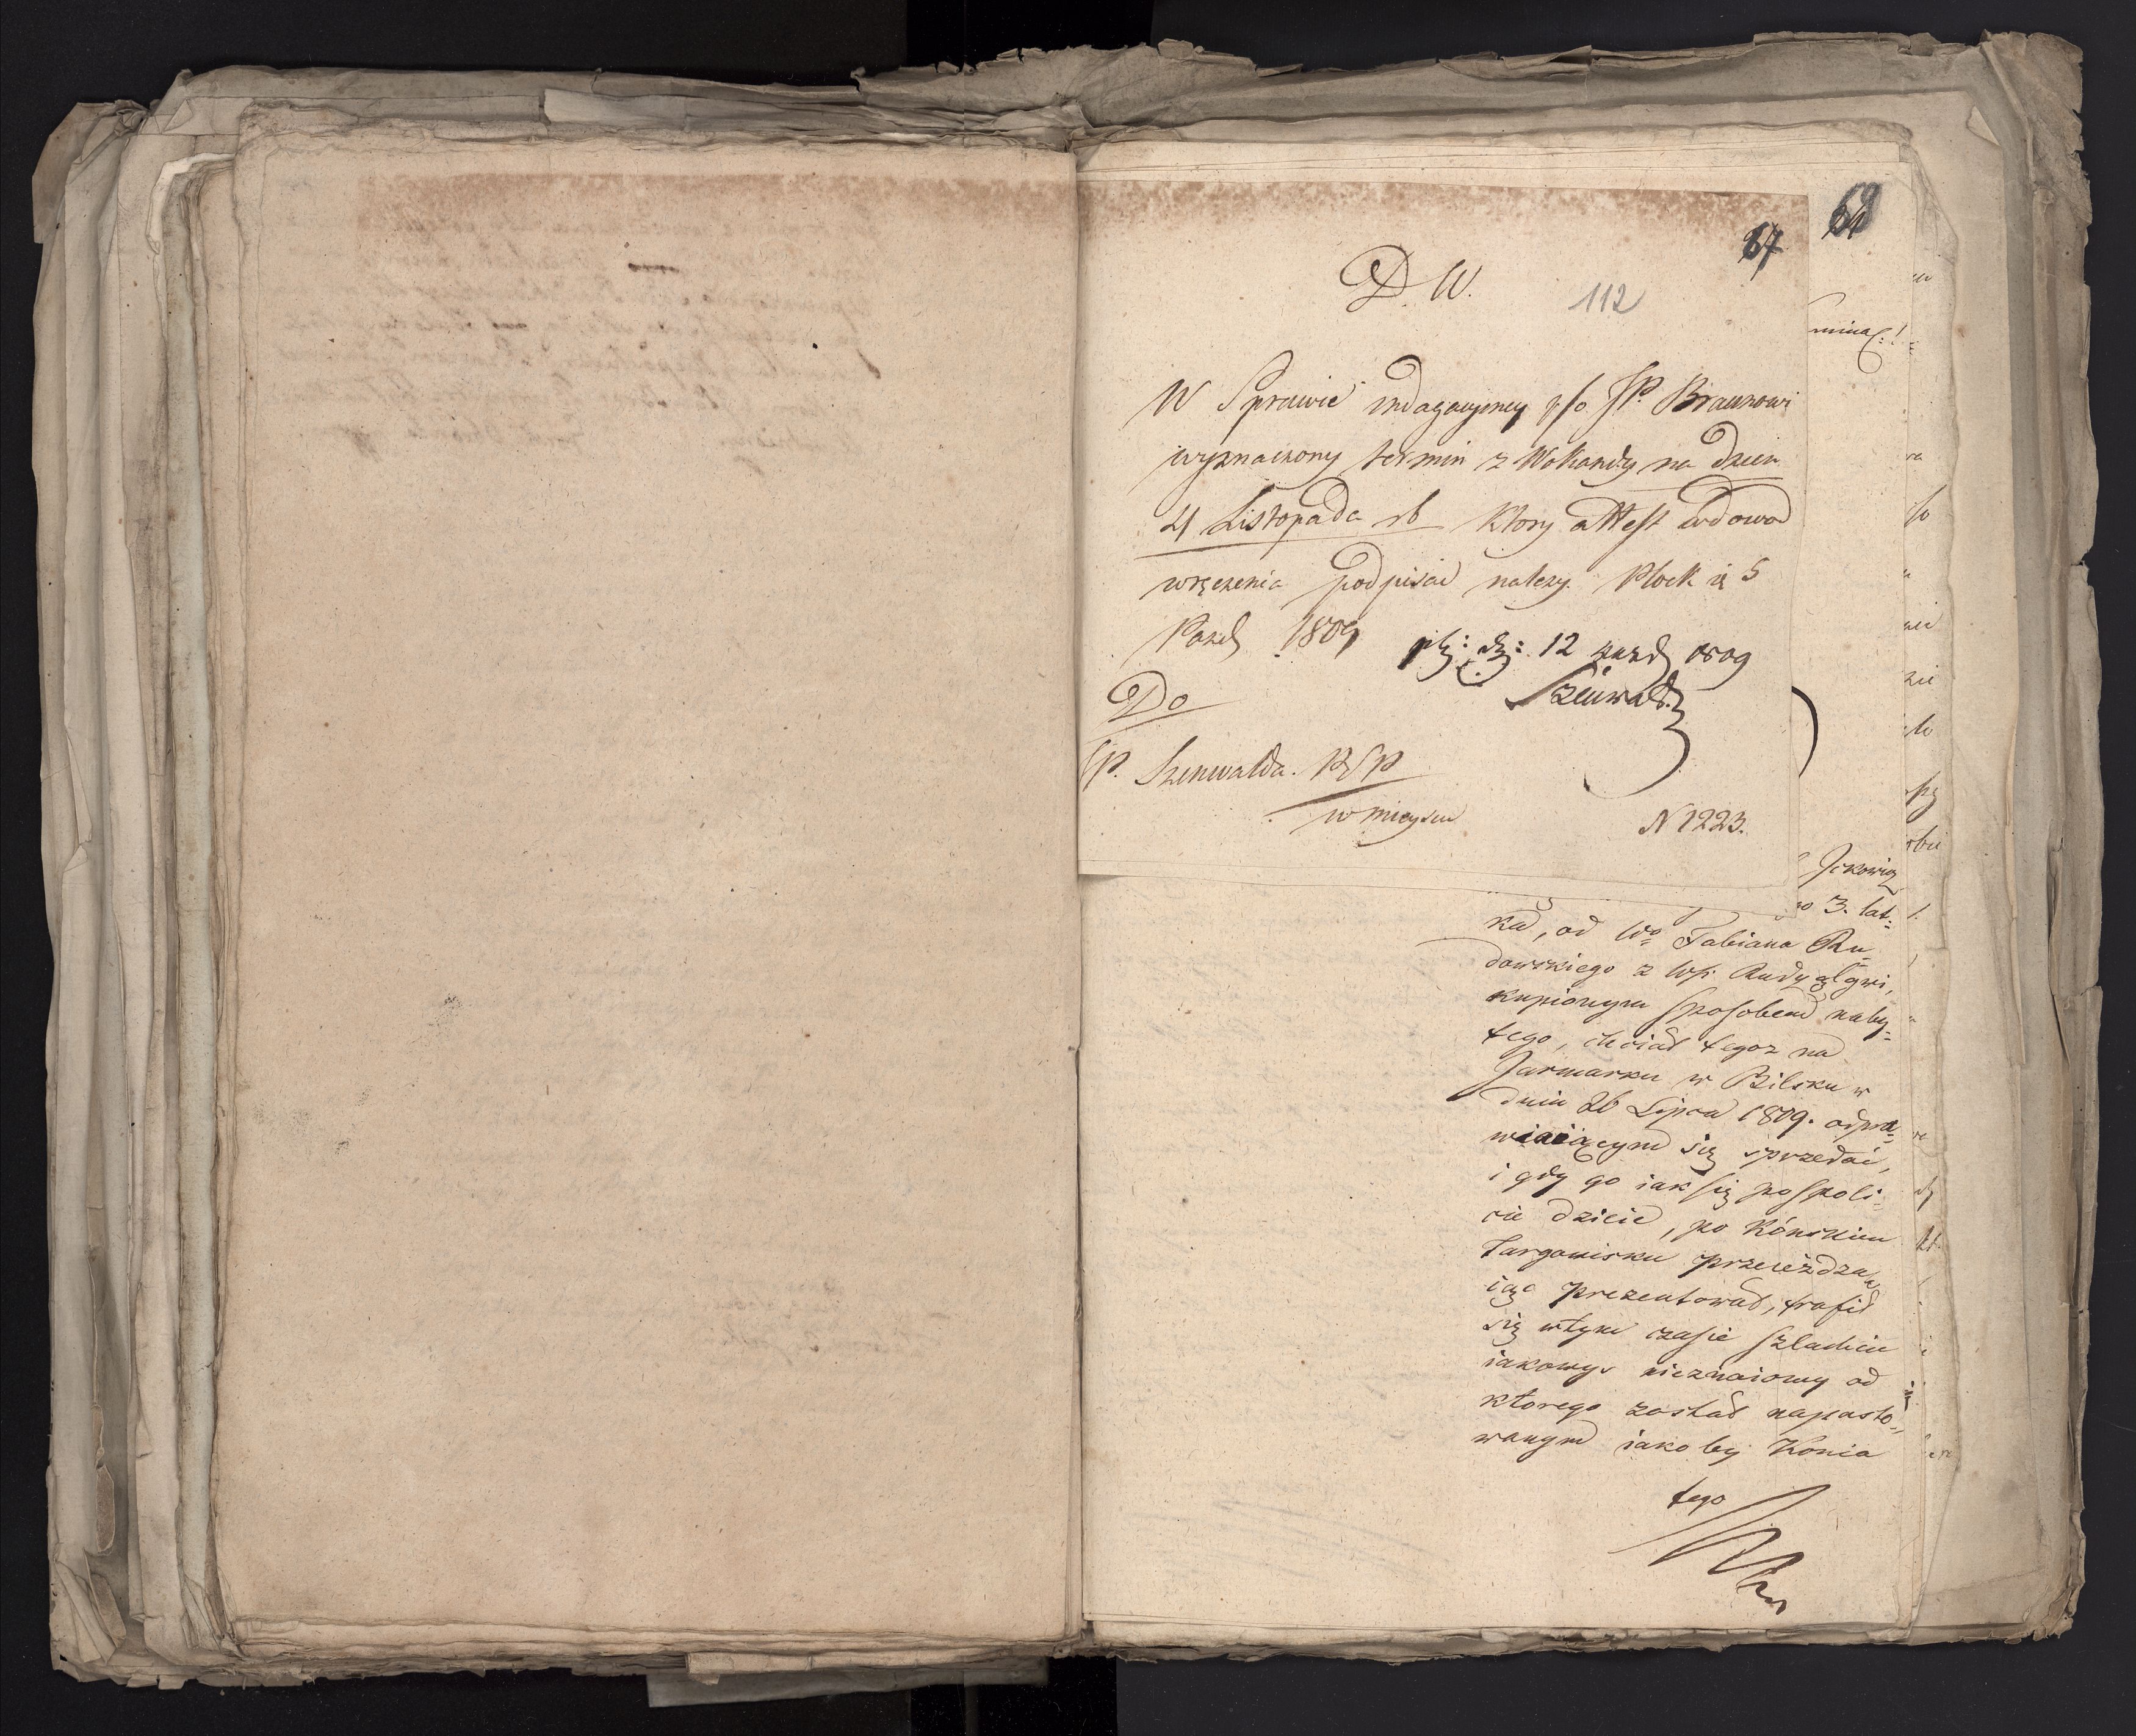 67
68
D. W.
112
W Sprawie indagacyiney p/o JP. Braunowi
wyznaczony termin z Wokandy na dzien
21 Listopada rb ktory attest wdowod
wręczenia podpisać nalezy. Plock d 5
Pazd. 1809
plz: dź: 12 pazd 1809
Szenwald.
Do
JP. Szenwalda. PSP
w mieyscu
N 1223.
minal:
Jckowicz
3. lat=
ka, od Wo Fabiana Ru=
dowskiego z Wsi Rudy zł gni,
kupionym sposobem naby=
tego, chciał tegoz na
Jarmarku w Bilsku w
dniu 26 Lipca 1809. odpra=
wiaiącym się sprzedać,
i gdy go iak się pospoli=
cie dzieie, po Kónskim
Targowisku przeieżdza=
iąc prezentował, trafił
się wtym czasie szlachcic
iakowys nieznaiomy od
ktorego został napasto=
wanym iakoby Konia
tego